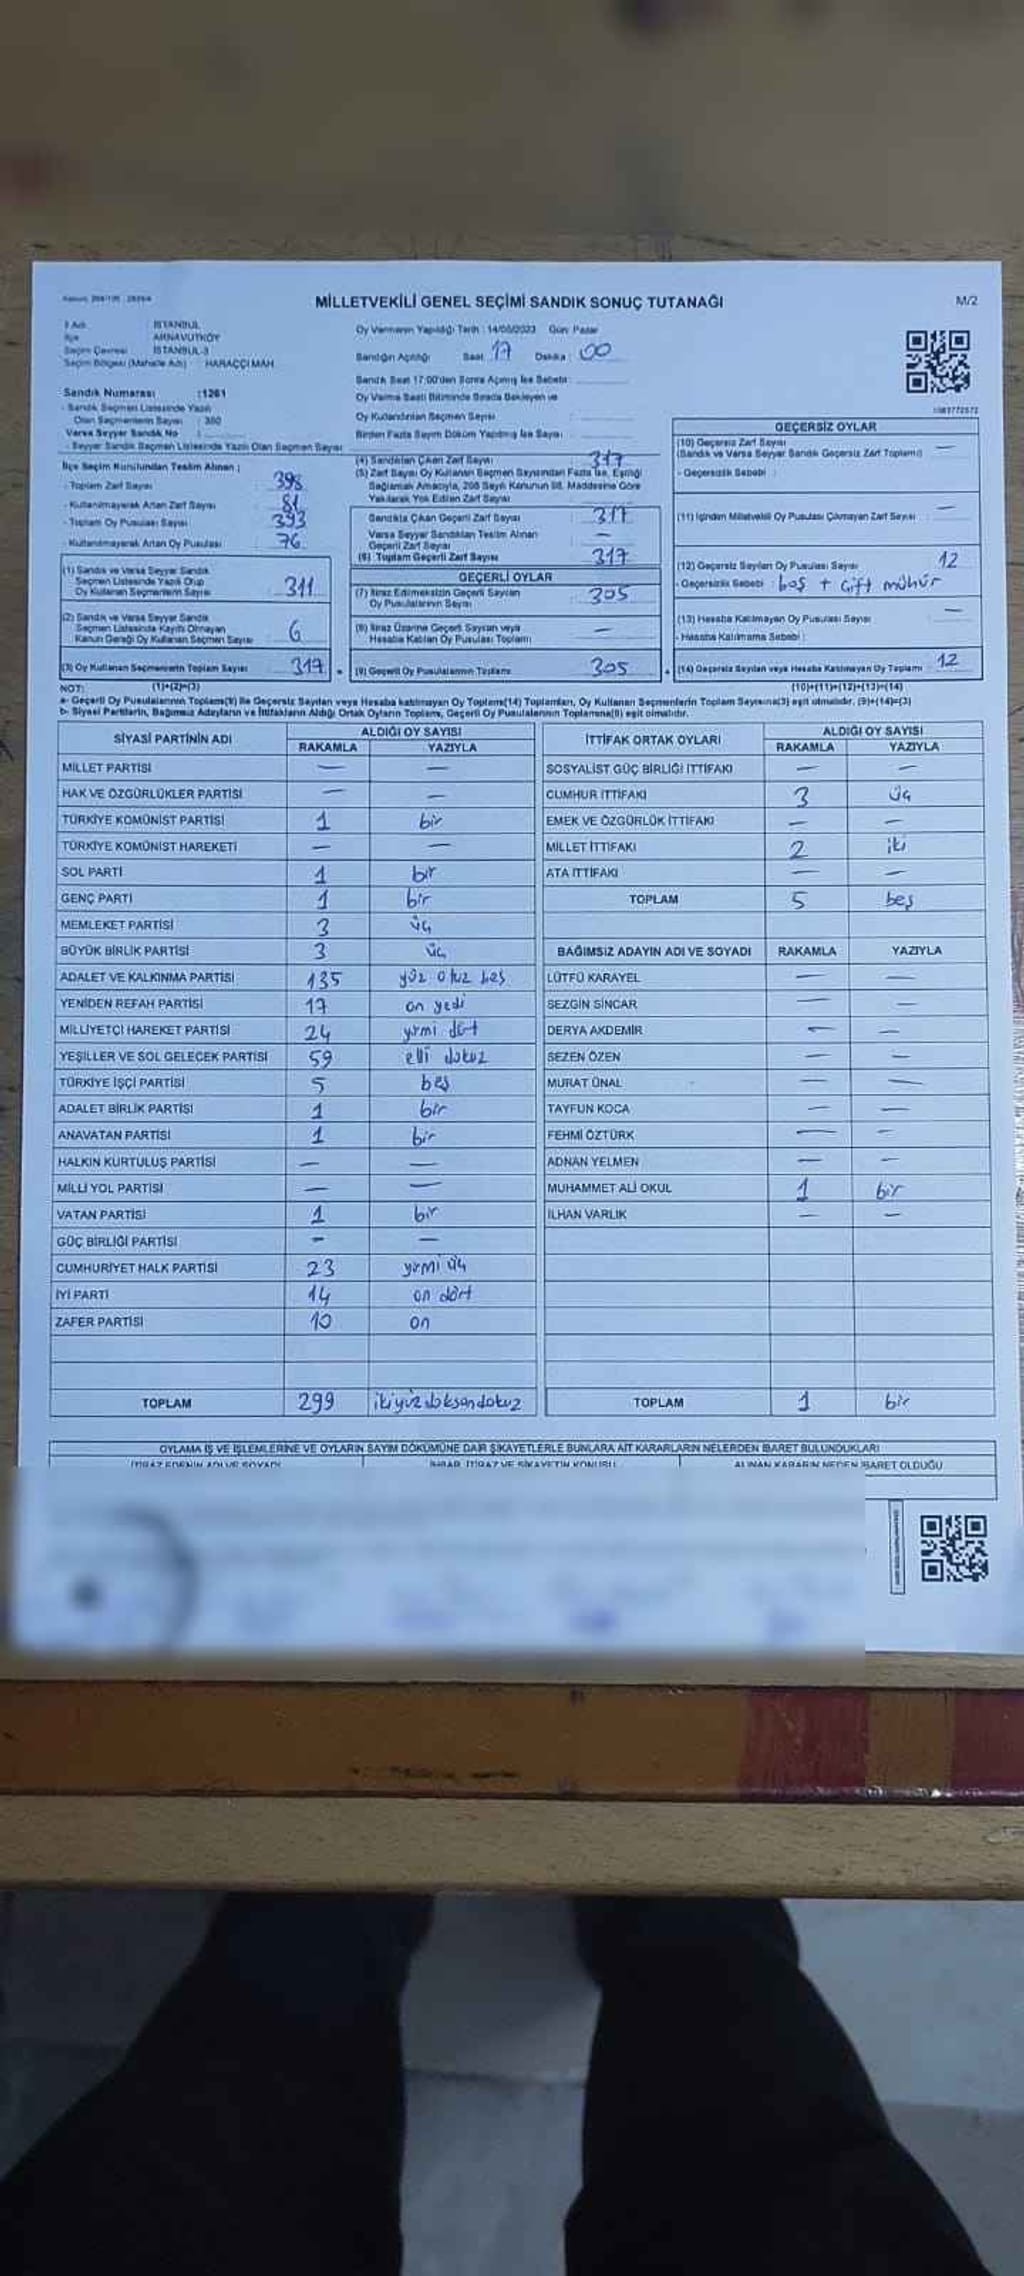 MİLLETVEKİLİ GENEL SEÇİMİ SANDIK SONUÇ TUTANAĞI
M/2
İl Adı : İSTANBUL
İlçe : ARNAVUTKÖY
Seçim Çevresi : İSTANBUL-3
Seçim Bölgesi (Mahalle Adı) : HARAÇÇI MAH
Oy Vermenin Yapıldığı Tarih : 14/05/2023 Gün: Pazar
Sandığın Açılığı Saat : 17 Dakika : 00
Sandık Saat 17:00'den Sonra Açılmış İse Sebebi :
Oy Verme Saati Bitiminde Sırada Bekleyen ve
Oy Kullandırılan Seçmen Sayısı
Birden Fazla Sayım Döküm Yapılmış İse Sayısı :
Sandık Numarası : 1261
- Sandık Seçmen Listesinde Yazılı
Olan Seçmenlerin Sayısı : 380
Varsa Seyyar Sandık No :
- Seyyar Sandık Seçmen Listesinde Yazılı Olan Seçmen Sayısı
İlçe Seçim Kurulundan Teslim Alınan ;
- Toplam Zarf Sayısı : 398
- Kullanılmayarak Artan Zarf Sayısı : 81
- Toplam Oy Pusulası Sayısı : 393
- Kullanılmayarak Artan Oy Pusulası : 76
(1) Sandık ve Varsa Seyyar Sandık
Seçmen Listesinde Yazılı Olup
Oy Kullanan Seçmenlerin Sayısı : 311
(2) Sandık ve Varsa Seyyar Sandık
Seçmen Listesinde Kayıtlı Olmayan
Kanun Gereği Oy Kullanan Seçmen Sayısı : 6
(3) Oy Kullanan Seçmenlerin Toplam Sayısı : 317
(1)+(2)=(3)
(4) Sandıktan Çıkan Zarf Sayısı : 317
(5) Zarf Sayısı Oy Kullanan Seçmen Sayısından Fazla İse, Eşitliği
Sağlamak Amacıyla, 298 Sayılı Kanunun 98. Maddesine Göre
Yakılarak Yok Edilen Zarf Sayısı
Sandıkta Çıkan Geçerli Zarf Sayısı : 317
Varsa Seyyar Sandıktan Teslim Alınan
Geçerli Zarf Sayısı : —
(6) Toplam Geçerli Zarf Sayısı : 317
GEÇERLİ OYLAR
(7) İtiraz Edilmeksizin Geçerli Sayılan
Oy Pusulalarının Sayısı : 305
(8) İtiraz Üzerine Geçerli Sayılan veya
Hesaba Katılan Oy Pusulası Toplamı : —
(9) Geçerli Oy Pusulalarının Toplamı : 305
GEÇERSİZ OYLAR
(10) Geçersiz Zarf Sayısı
(Sandık ve Varsa Seyyar Sandık Geçersiz Zarf Toplamı) : —
- Geçersizlik Sebebi :
(11) İçinden Milletvekili Oy Pusulası Çıkmayan Zarf Sayısı : —
(12) Geçersiz Sayılan Oy Pusulası Sayısı : 12
- Geçersizlik Sebebi : boş + çift mühür
(13) Hesaba Katılmayan Oy Pusulası Sayısı : —
- Hesaba Katılmama Sebebi :
(14) Geçersiz Sayılan veya Hesaba Katılmayan Oy Toplamı : 12
(10)+(11)+(12)+(13)=(14)
NOT:
a- Geçerli Oy Pusulalarının Toplamı(9) ile Geçersiz Sayılan veya Hesaba katılmayan Oy Toplamı(14) Toplamları, Oy Kullanan Seçmenlerin Toplam Sayısına(3) eşit olmalıdır. (9)+(14)=(3)
b- Siyasi Partilerin, Bağımsız Adayların ve İttifakların Aldığı Ortak Oyların Toplamı, Geçerli Oy Pusulalarının Toplamına(9) eşit olmalıdır.
SİYASİ PARTİNİN ADI ALDIĞI OY SAYISI
RAKAMLA YAZIYLA
MİLLET PARTİSİ — —
HAK VE ÖZGÜRLÜKLER PARTİSİ — —
TÜRKİYE KOMÜNİST PARTİSİ 1 bir
TÜRKİYE KOMÜNİST HAREKETİ — —
SOL PARTİ 1 bir
GENÇ PARTİ 1 bir
MEMLEKET PARTİSİ 3 üç
BÜYÜK BİRLİK PARTİSİ 3 üç
ADALET VE KALKINMA PARTİSİ 135 yüz otuz beş
YENİDEN REFAH PARTİSİ 17 on yedi
MİLLİYETÇİ HAREKET PARTİSİ 24 yirmi dört
YEŞİLLER VE SOL GELECEK PARTİSİ 59 elli dokuz
TÜRKİYE İŞÇİ PARTİSİ 5 beş
ADALET BİRLİK PARTİSİ 1 bir
ANAVATAN PARTİSİ 1 bir
HALKIN KURTULUŞ PARTİSİ — —
MİLLİ YOL PARTİSİ — —
VATAN PARTİSİ 1 bir
GÜÇ BİRLİĞİ PARTİSİ - —
CUMHURİYET HALK PARTİSİ 23 yirmi üç
İYİ PARTİ 14 on dört
ZAFER PARTİSİ 10 on
TOPLAM 299 ikiyüzdoksandokuz
İTTİFAK ORTAK OYLARI ALDIĞI OY SAYISI
RAKAMLA YAZIYLA
SOSYALİST GÜÇ BİRLİĞİ İTTİFAKI — —
CUMHUR İTTİFAKI 3 üç
EMEK VE ÖZGÜRLÜK İTTİFAKI — —
MİLLET İTTİFAKI 2 iki
ATA İTTİFAKI — —
TOPLAM 5 beş
BAĞIMSIZ ADAYIN ADI VE SOYADI RAKAMLA YAZIYLA
LÜTFÜ KARAYEL — —
SEZGİN SİNCAR — —
DERYA AKDEMİR — —
SEZEN ÖZEN — —
MURAT ÜNAL — —
TAYFUN KOCA — —
FEHMİ ÖZTÜRK — —
ADNAN YELMEN — —
MUHAMMET ALİ OKUL 1 bir
İLHAN VARLIK — —
TOPLAM 1 bir
OYLAMA İŞ VE İŞLEMLERİNE VE OYLARIN SAYIM DÖKÜMÜNE DAİR ŞİKAYETLERLE BUNLARA AİT KARARLARIN NELERDEN İBARET BULUNDUKLARI
İTİRAZ EDENİN ADI VE SOYADI İHBAR, İTİRAZ VE ŞİKAYETİN KONUSU ALINAN KARARIN NEDEN İBARET OLDUĞU